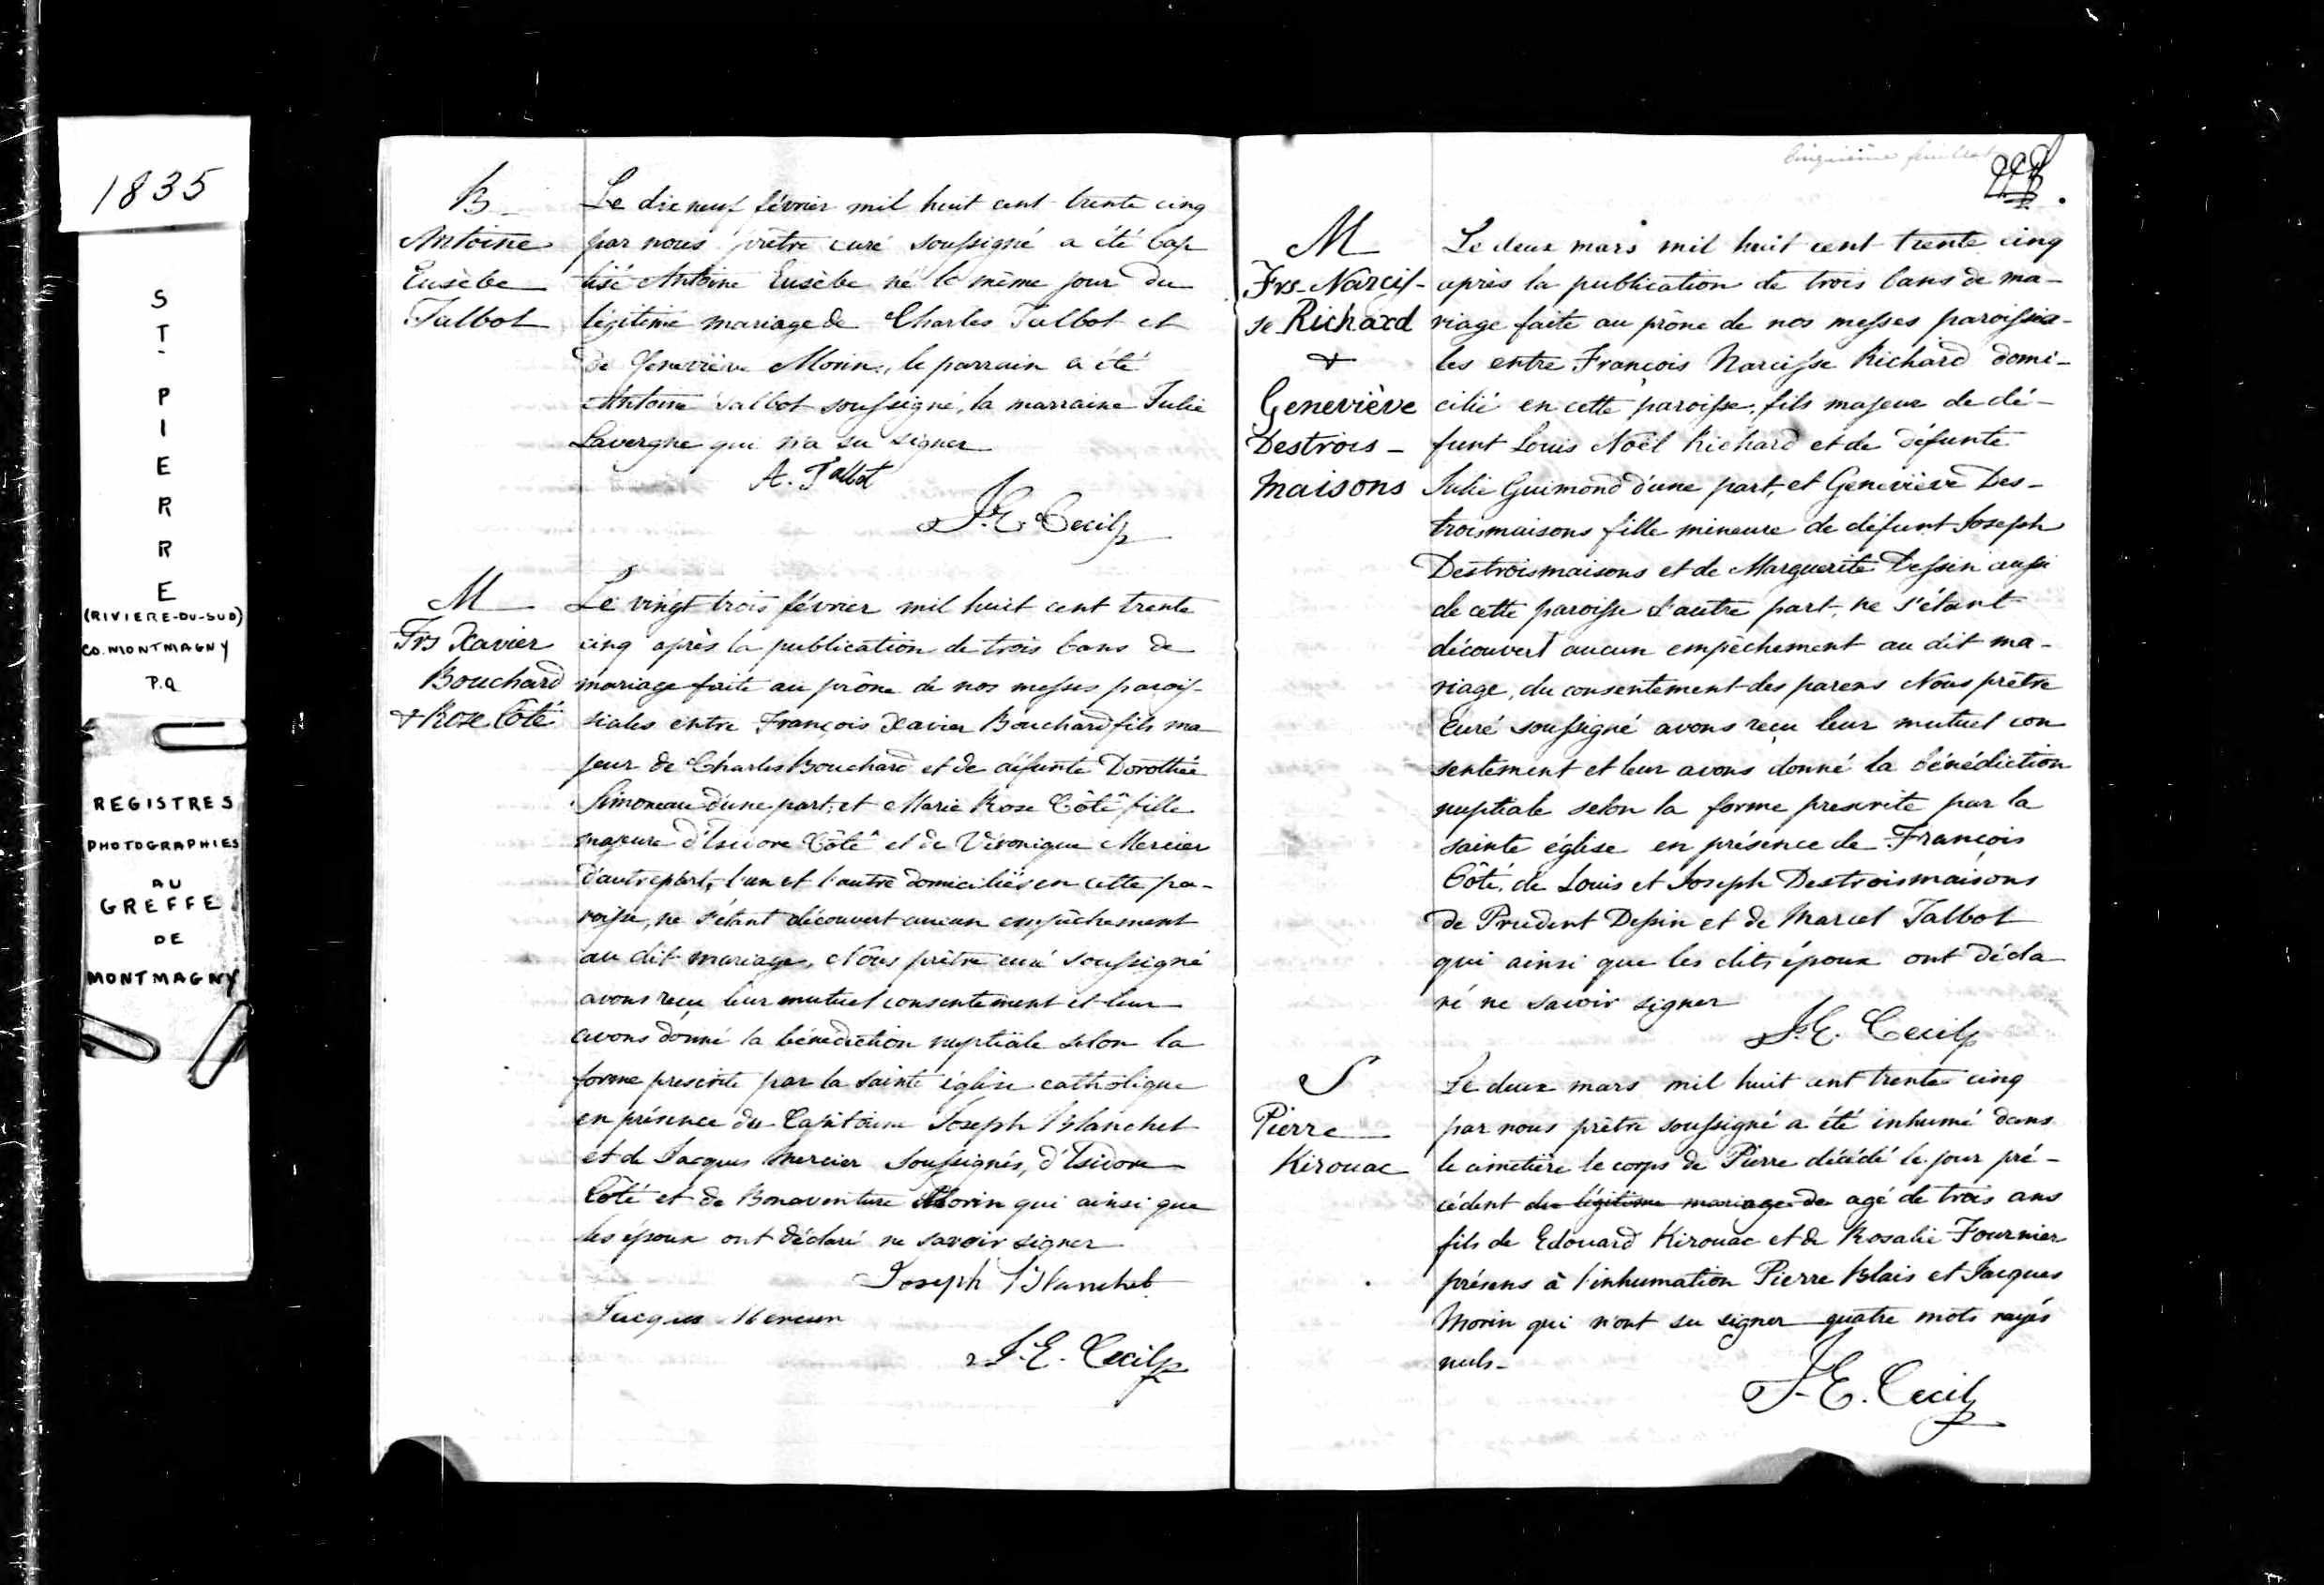 1835
ST-PIERRE
(RIVIERE-DU-SUD)
CO. MONTMAGNY
P.Q
REGISTRES
PHOTOGRAPHIES
AU
GREFFE
DE
MONTMAGNY
B
Antoine
Eusèbe
Talbot
Le dix neuf février mil huit cent trente cinq
par nous prêtre curé soussigné a été bap
tisé Antoine Eusèbe né le même jour du
légitime mariage de Charles Talbot et
de Geneviève Morin, le parrain a été
Antoine Talbot soussigné, la marraine Julie
Lavergne qui n'a su signer
A. Talbot
J. E. Cecil
M
Frs Xavier
Bouchard
& Rose Côté
Le vingt trois février mil huit cent trente
cinq après la publication de trois bans de
mariage faite au prône de nos messes parois-
siales entre François Xavier Bouchard fils ma
jeur de Charles Bouchard et de défunte Dorothée
Simoneau d'une part, et Marie Rose Côté fille
majeure d'Isidore Côté et de Véronique Mercier
d'autre part, l'un et l'autre domiciliés en cette pa-
roisse, ne s'étant découvert aucun empêchement
au dit mariage, Nous prêtre curé soussigné
avons reçu leur mutuel consentement et leur
avons donné la bénédiction nuptiale selon la
forme prescrite par la sainte église catholique
en présence du Capitaine Joseph Blanchet
et de Jacques Mercier soussignés, d'Isidore
Côté et de Bonaventure Morin qui ainsi que
les époux ont déclaré ne savoir signer
Joseph Blanchet
Jacques Mercier
J. E. Cecil
Cinquième feuillet
M
Frs Narcis-
se Richard
&
Geneviève
Destrois-
maisons
Le deux mars mil huit cent trente cinq
après la publication de trois bans de ma-
riage faite au prône de nos messes paroissia-
les entre François Narcisse Richard domi-
cilié en cette paroisse, fils majeur de dé-
funt Louis Noël Richard et de défunte
Julie Guimond d'une part, et Geneviève Des-
troismaisons fille mineure de défunt Joseph
Destroismaisons et de Marguerite Dessin aussi
de cette paroisse d'autre part, ne s'étant
découvert aucun empêchement au dit ma-
riage, du consentement des parens Nous prêtre
Curé soussigné avons reçu leur mutuel con
sentement et leur avons donné la bénédiction
nuptiale selon la forme prescrite par la
sainte église en présence de François
Côté, de Louis et Joseph Destroismaisons
de Prudent Dessin et de Marcel Talbot
qui ainsi que les dits époux ont décla
ré ne savoir signer
J. E. Cecil
S
Pierre
Kirouac
Le deux mars mil huit cent trente cinq
par nous prêtre soussigné a été inhumé dans
le cimetière le corps de Pierre décédé le jour pré-
cédent du légitime mariage de agé de trois ans
fils de Edouard Kirouac et de Rosalie Fournier
présens à l'inhumation Pierre Blais et Jacques
Morin qui n'ont su signer quatre mots rayés
nuls-
J. E. Cecil